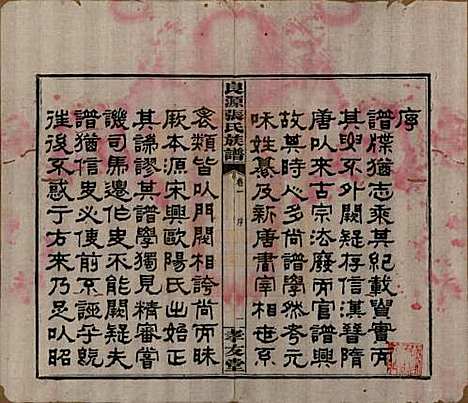 序
譜牒猶志乘其紀載貴實而
其與不外闕疑存信漢晉隋
唐以來古宗法廢而官譜興
故其時人多尚譜學然考元
味姓纂及新唐書宰相世系
良源張氏族譜
卷一
序
一
孝友堂
表類皆以門閥相誇尚而昧
厥本源宋興歐陽氏出始矯正
其謬其譜學獨見精審嘗
譏司馬遷作史不能闕疑夫
譜猶信史必使前不誣乎既
往後不惑于方來乃足以昭